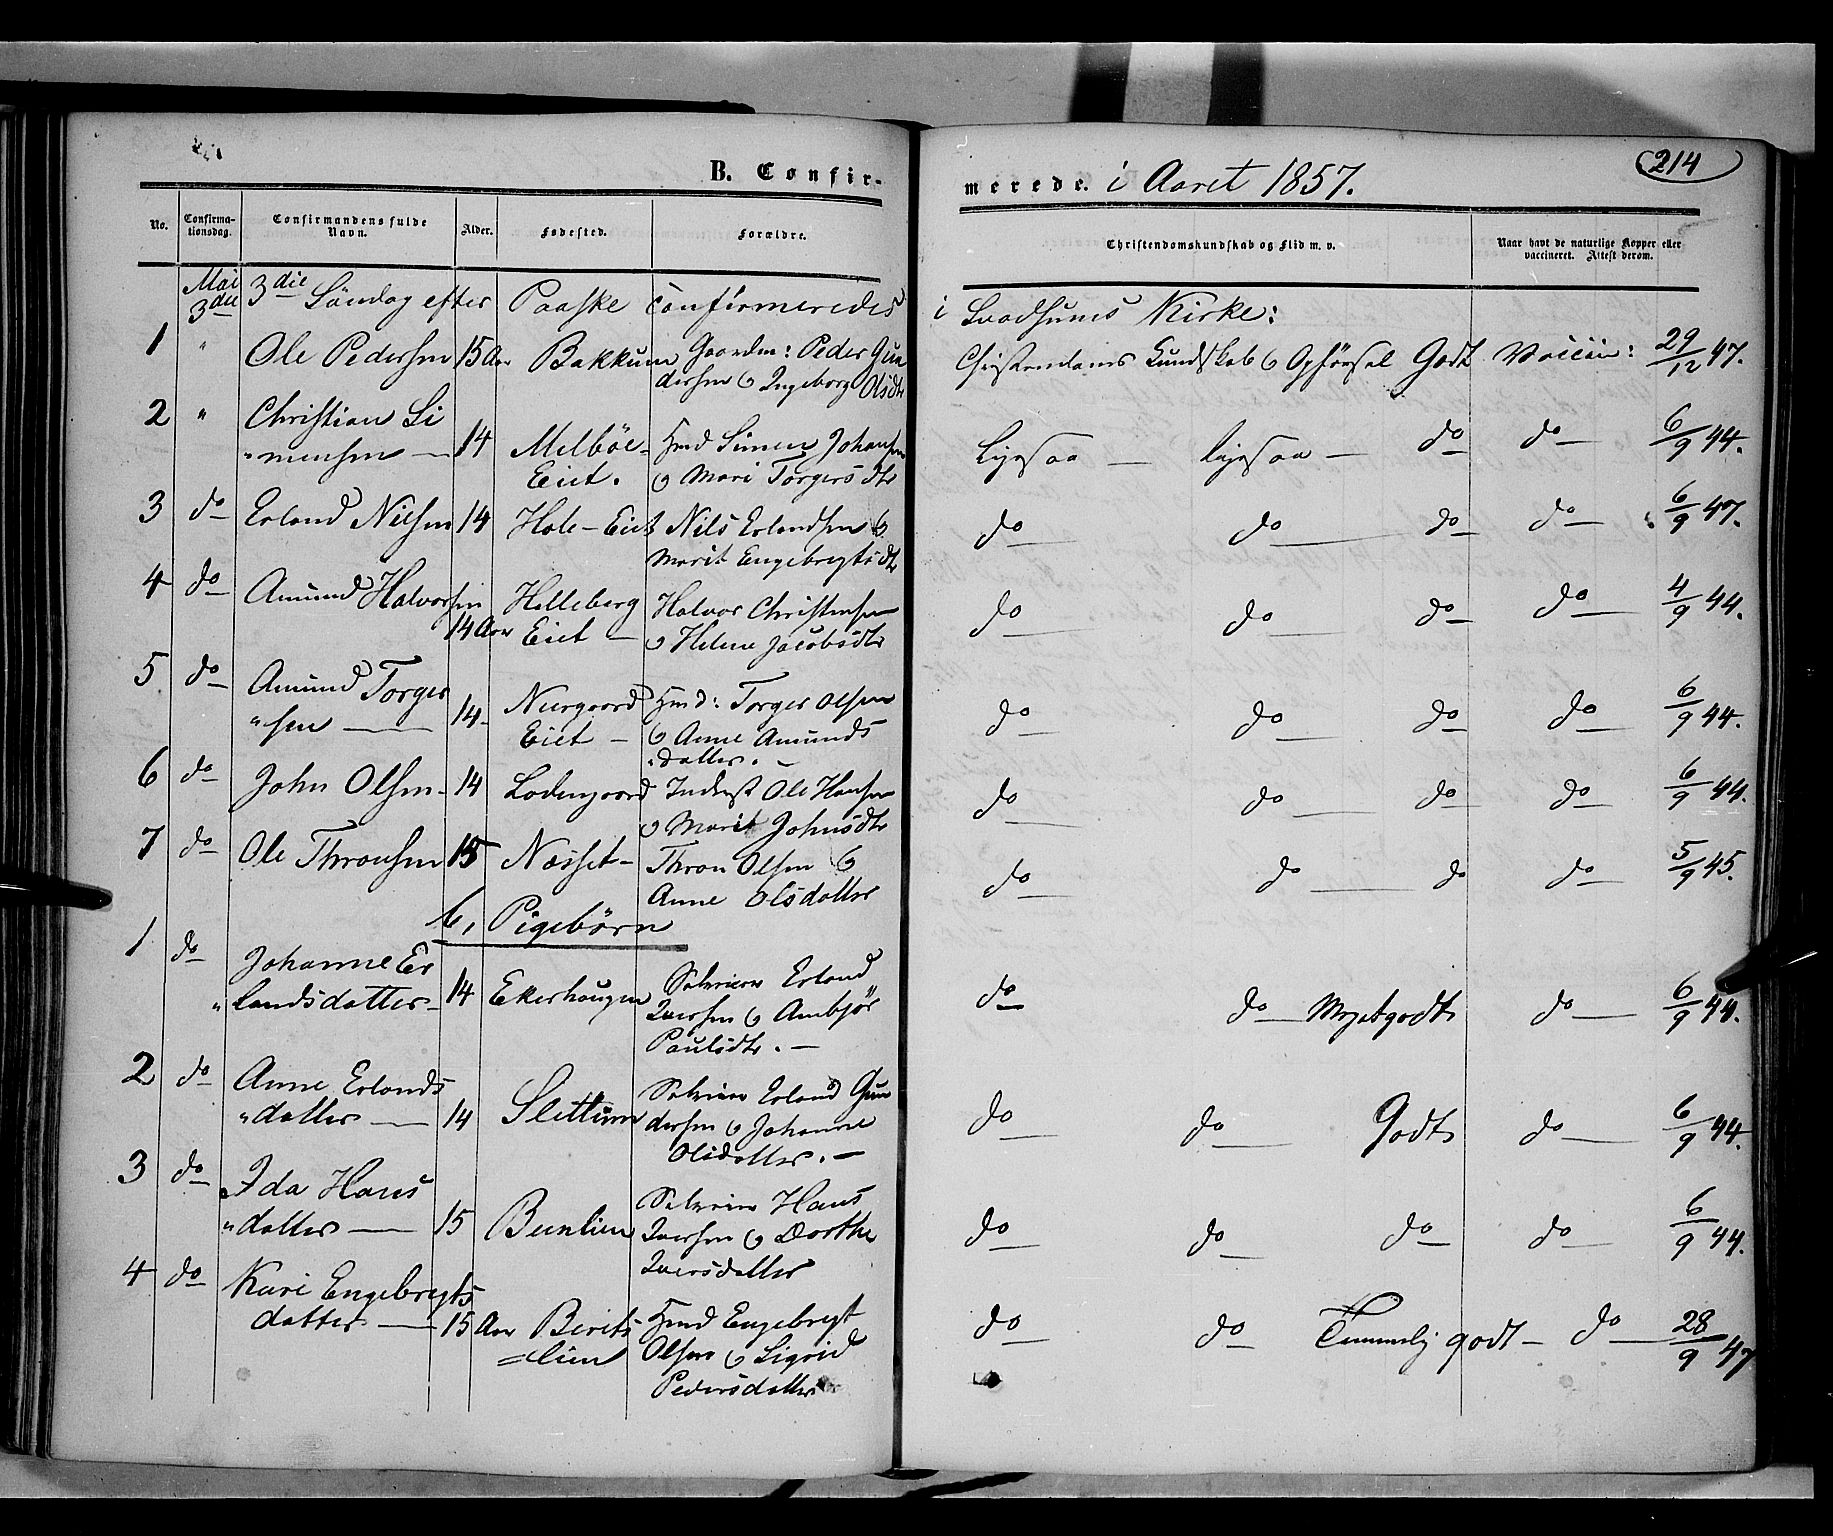 B. Confir-
merede. i Aaret 1857.
214
No.
Confirma-
tionsdag.
Confirmandens fulde
Navn.
Alder.
Fødested.
Forældre.
Christendomskundskab og Flid m. v.
Naar havt de naturlige Kopper eller
vaccineret. Attest derom.
Mai
3die 3die Söndag efter Paaske Confirmeredes i Svadsums Kirke:
1 " Ole Pedersen 15 Aar Bakkum Gaardm: Peder Gun
dersen & Ingeborg Olsdtr
Christendoms Kundskab & Opførsel Godt Vaccin: 29/12 47.
2 " Christian Si
"mensen — 14 Melböe-
Eiet.
Hmd Simen Johansen
& Mari Torgersdtr
Ligesaa — ligesaa — do do — 6/9 44.
3 do Erland Nilsen 14 Hole-Eiet Nils Erlandsen &
Marit Engebregtsdtr
do do do do — 6/9 47.
4 do Amund Halvorsen
14 Aar Helleberg
Eiet —
Halvor Christensen
& Helene Jacobsdtr
do do do do — 4/9 44.
5 do Amund Torger
"sen — 14- Nurgaard
Eiet —
Hmd: Torger Olsen
& Anne Amunds
"datter. —
do do do do — 6/9 44.
6 do John Olsen - 14 Lodengaard Inderst Ole Hansen
& Marit Johnsdtr
do do do do — 6/9 44.
7 do Ole Thronsen 15 Nasset - Thron Olsen &
Anne Olsdatter
do do do do — 5/9 45.
b, Pigebörn
1 do Johanne Er
"landsdatter - 14 Ekerhaugen Erland
Iversen & Ambjör
Paulsdtr. —
do do Megetgodt do — 6/9 44.
2 do Anne Erlands
"datter — 14 Slettum Erland Gun
dersen & Johanne
Olsdatter. —
do do Godt do — 6/9 44.
3 do Ida Hans
"datter — 15 Bunlien Hans
Iversen & Dorthe
Iversdatter
do do do do — 6/9 44.
4 do Kari Engebregts
datter — 15 Aar Berits
=lien
Hmd Engebregt
Olsen & Sigrid
Pedersdatter
do do Temmelig godt — do — 28/9 47